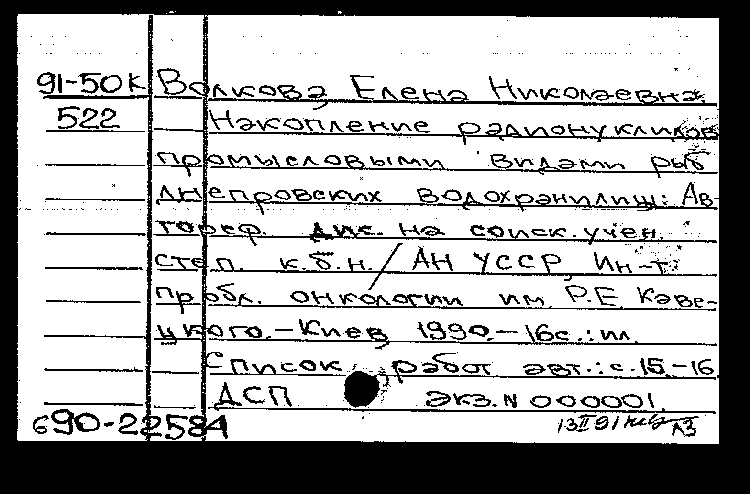 91-50К Волкова Елена Николаевна
522 Накопление радионуклидов
промысловыми видами рыб
днепровских водохранилищ: Ав-
тореф. дис. на соиск. учен.
степ. к.б.н. / АН УССР, Ин-т
пробл. онкологии им. Р.Е. Каве-
цкого. - Киев 1990. - 16с.: ил.
Список работ авт.: с. 15-16
ДСП экз. N 000001.
690-22584 13 II 91